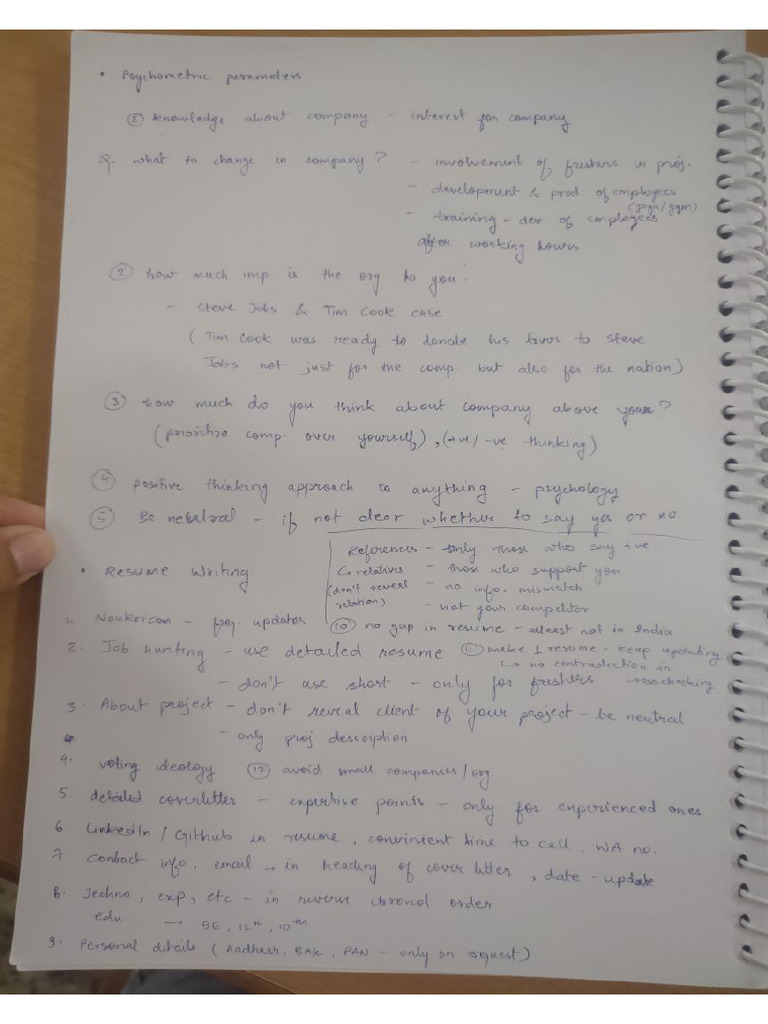 • Psychometric parameters
① knowledge about company - interest for company
Q. what to change in company? - involvement of freshers in proj.
- development & prod of employees
(yoga/gym)
- training - dev. of employees
after working hours
② how much imp is the org to you.
- Steve Jobs & Tim Cook case
( Tim Cook was ready to donate his liver to Steve
Jobs not just for the comp. but also for the nation)
③ how much do you think about company above your?
(prioritize comp. over yourself), (+ve/-ve thinking)
④ positive thinking approach to anything - psychology
⑤ Be netutral - if not clear whether to say yes or no.
References - only those who say +ve
↳ relatives - those who support you
(don't reveal relation) - no info. mismatch
- not your competitor
• Resume Writing
1. Naukri.com - freq. updates ⑩ no gap in resume - atleast not in India
2. Job hunting - use detailed resume ⑪ make 1 resume - keep updating
↳ no contradiction in crosschecking
- don't use short - only for freshers
3. About project - don't reveal client of your project - be neutral
- only proj description
4. voting ideology ⑫ avoid small companies/org
5. detailed coverletter - expertise points - only for experienced ones
6. LinkedIn / Github in resume, convinient time to call, WA no.
7. contact info, email → in heading of cover letter, date - update
8. Techno, exp, etc - in reverse chronol. order
edu. → BE, 12th, 10th
9. Personal details (Aadhaar, PAN - only on request)